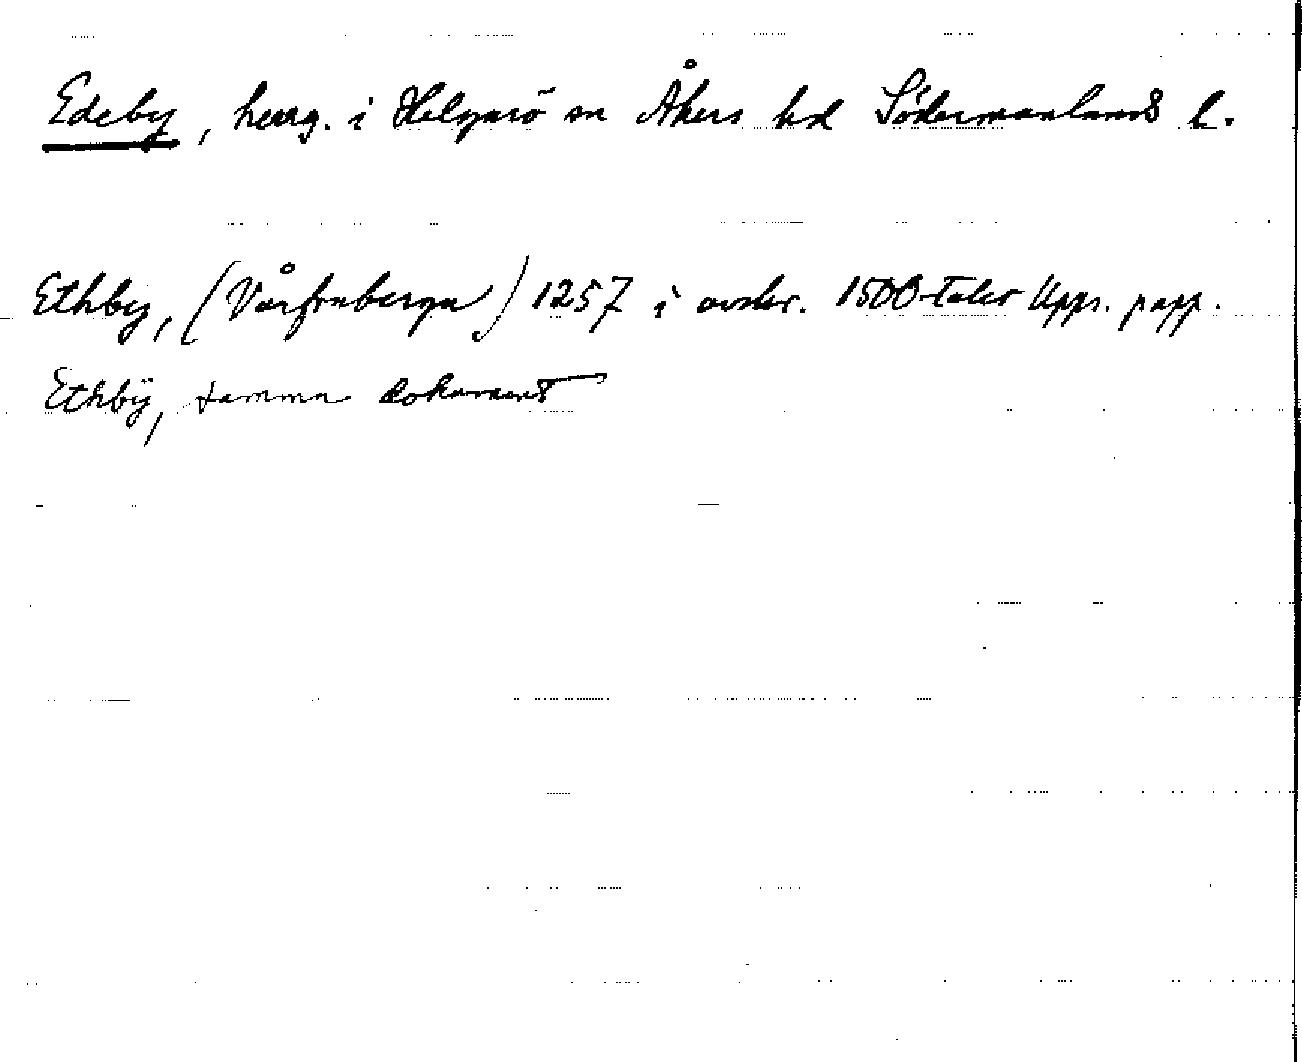 Edeby, herrg. i Helgarö sn Åkers hd Södermanlands l.
Ethby, (Vårfruberga) 1257 i avskr. 1500-talet Upps. papp.
Ethbÿ, samma dokument